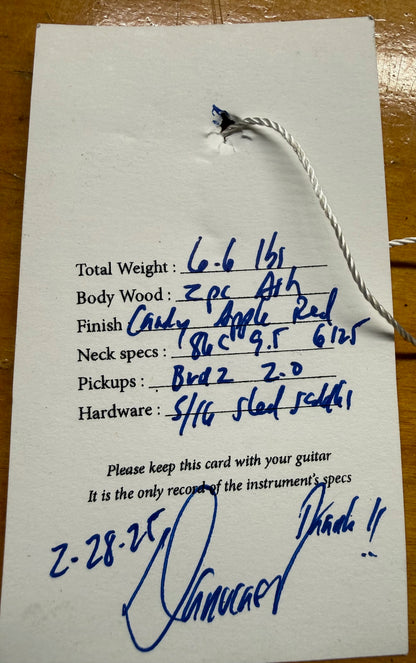 Total Weight : 6.6 lbs
Body Wood : 2 pc Ash
Finish Candy Apple Red
Neck specs : 86 C 9.5 6125
Pickups : 2.0
Hardware : 5/16 sled saddles
Please keep this card with your guitar
It is the only record of the instrument's specs
2-28-25 Thank !!